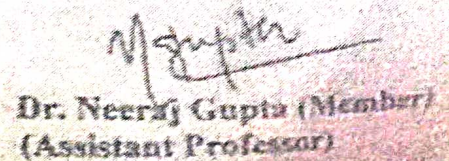 N gupta
Dr. Neeraj Gupta (Member)
(Assistant Professor)